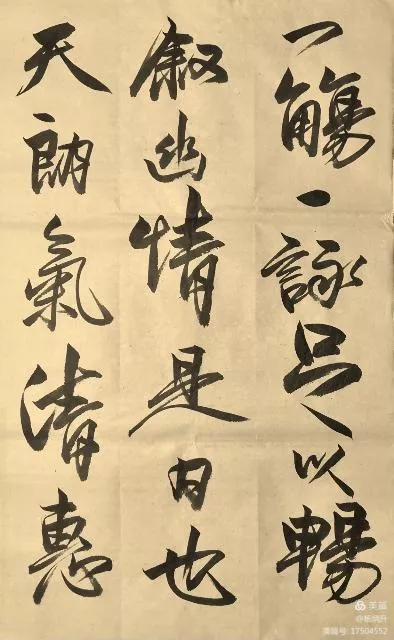 一觴一詠足以暢
敘幽情是日也
天朗氣清惠
美篇
@杨炳升
美篇号: 17504552